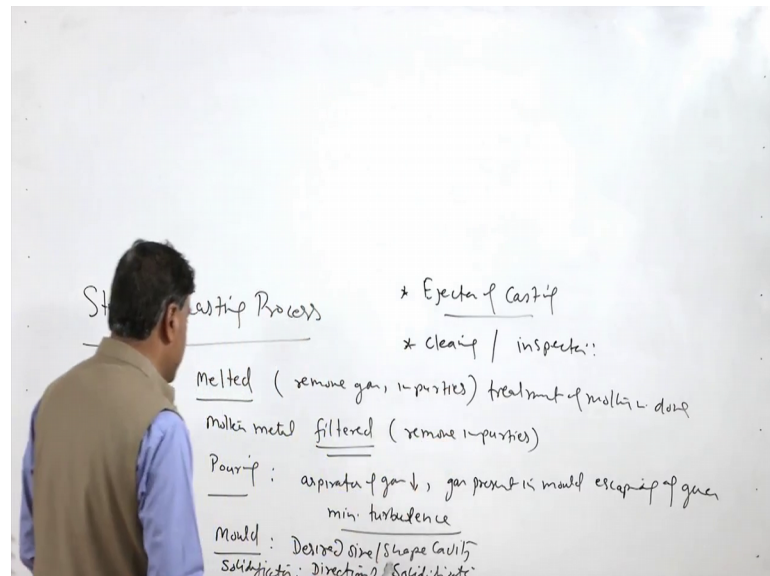 St asting Process
* Ejection of Casting
* Cleaning / inspection:
Melted (remove gas, impurties) treatment of molten is done
Molten metal filtered (remove impurties)
Pouring : aspiration of gas ↓, gas present in mould escaping of gases
min. turbulence
Mould : Desired size/shape Cavity
Solidification: Directional Solidificati